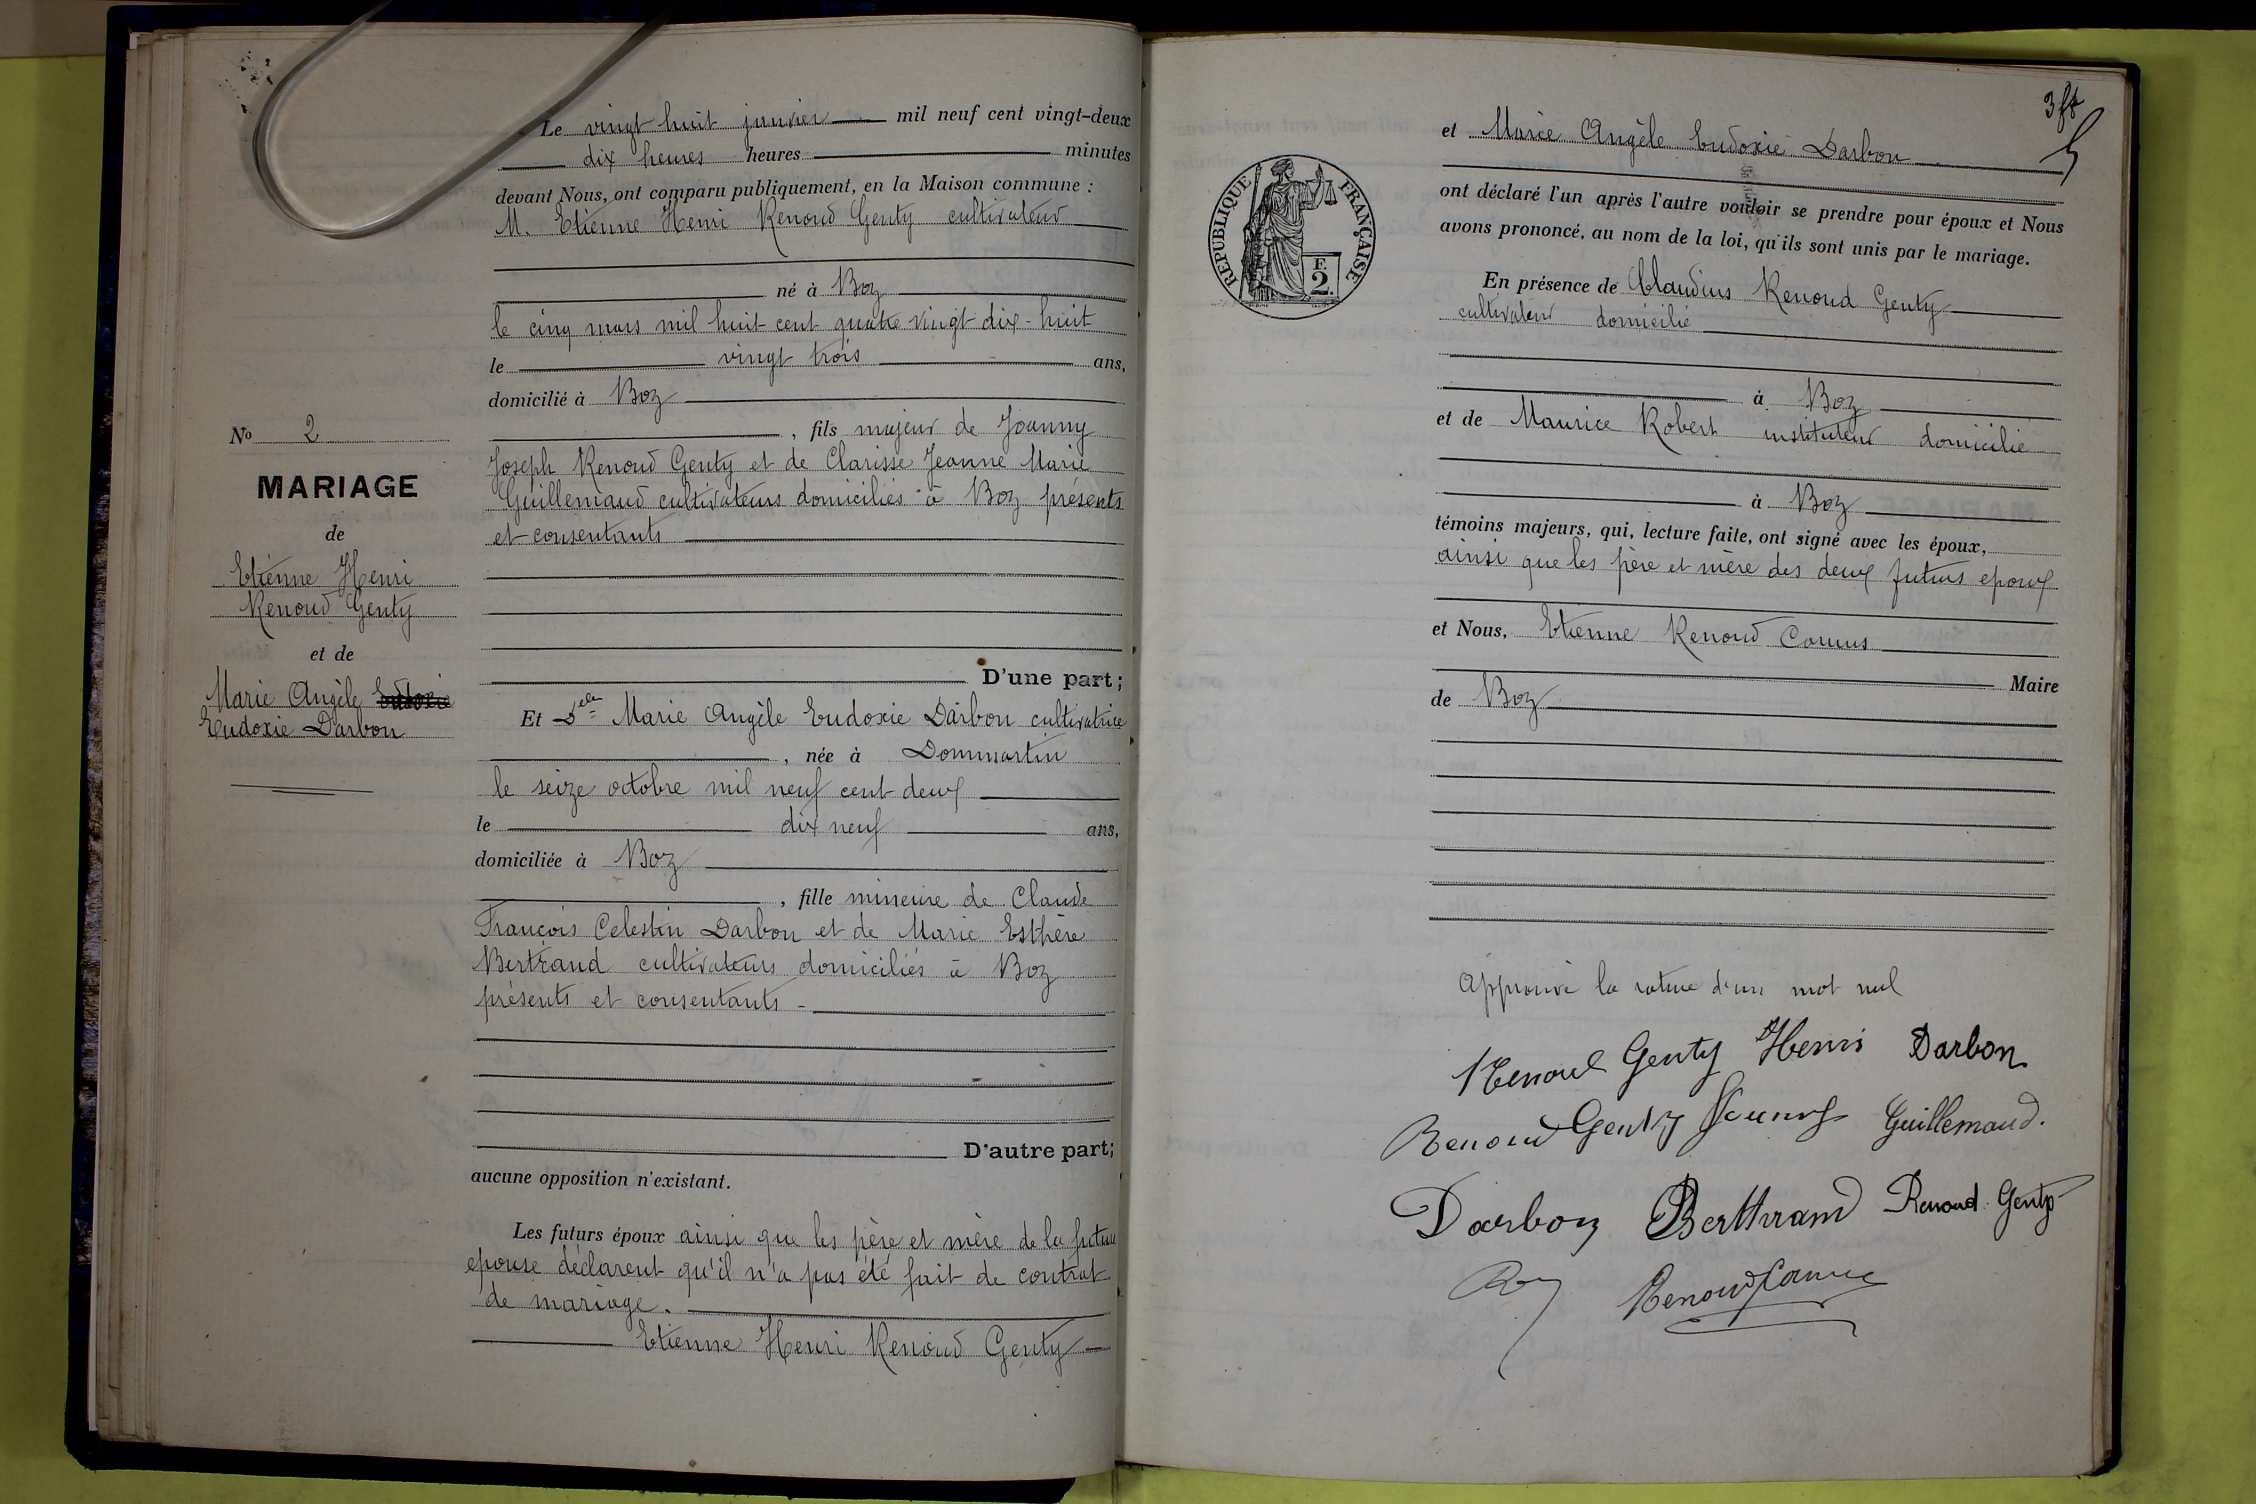 Le vingt huit janvier mil neuf cent vingt-deux
dix heures heures minutes
devant Nous, ont comparu publiquement, en la Maison commune :
M. Etienne Henri Renoud Genty cultivateur
né à Boz
le cinq mars mil huit cent quatre vingt dix-huit
le vingt trois ans,
domicilié à Boz
, fils majeur de Joanny
Joseph Renoud Genty et de Clarisse Jeanne Marie
Guillemaud cultivateurs domiciliés à Boz présents
et consentants
D'une part ;
Et Delle Marie Angèle Eudoxie Darbon cultivatrice
, née à Dommartin
le seize octobre mil neuf cent deux
le dix neuf ans,
domiciliée à Boz
, fille mineure de Claude
François Celestin Darbon et de Marie Esthère
Bertrand cultivateurs domiciliés à Boz
présents et consentants -
D'autre part ;
aucune opposition n'existant.
Les futurs époux ainsi que les père et mère de la future
epouse déclarent qu'il n'a pas été fait de contrat
de mariage.
Etienne Henri Renoud Genty
No 2
MARIAGE
de
Etienne Henri
Renoud Genty
et de
Marie Angèle Eudoxie
Eudoxie Darbon
3 ft
RÉPUBLIQUE FRANÇAISE
F.
2.
et Marie Angèle Eudoxie Darbon
ont déclaré l'un après l'autre vouloir se prendre pour époux et Nous
avons prononcé, au nom de la loi, qu'ils sont unis par le mariage.
En présence de Claudius Renoud Genty
cultivateur domicilié
à Boz
et de Maurice Robert instituteur domicilié
à Boz
témoins majeurs, qui, lecture faite, ont signé avec les époux,
ainsi que les père et mère des deux futurs epoux
et Nous, Etienne Renoud Camus
Maire
de Boz
Approuvé la rature d'un mot nul
Renoud Genty Henri Darbon
Renoud Genty Joanny Guillemaud.
Darbon Berthrand Renoud-Genty
Renoud Camus